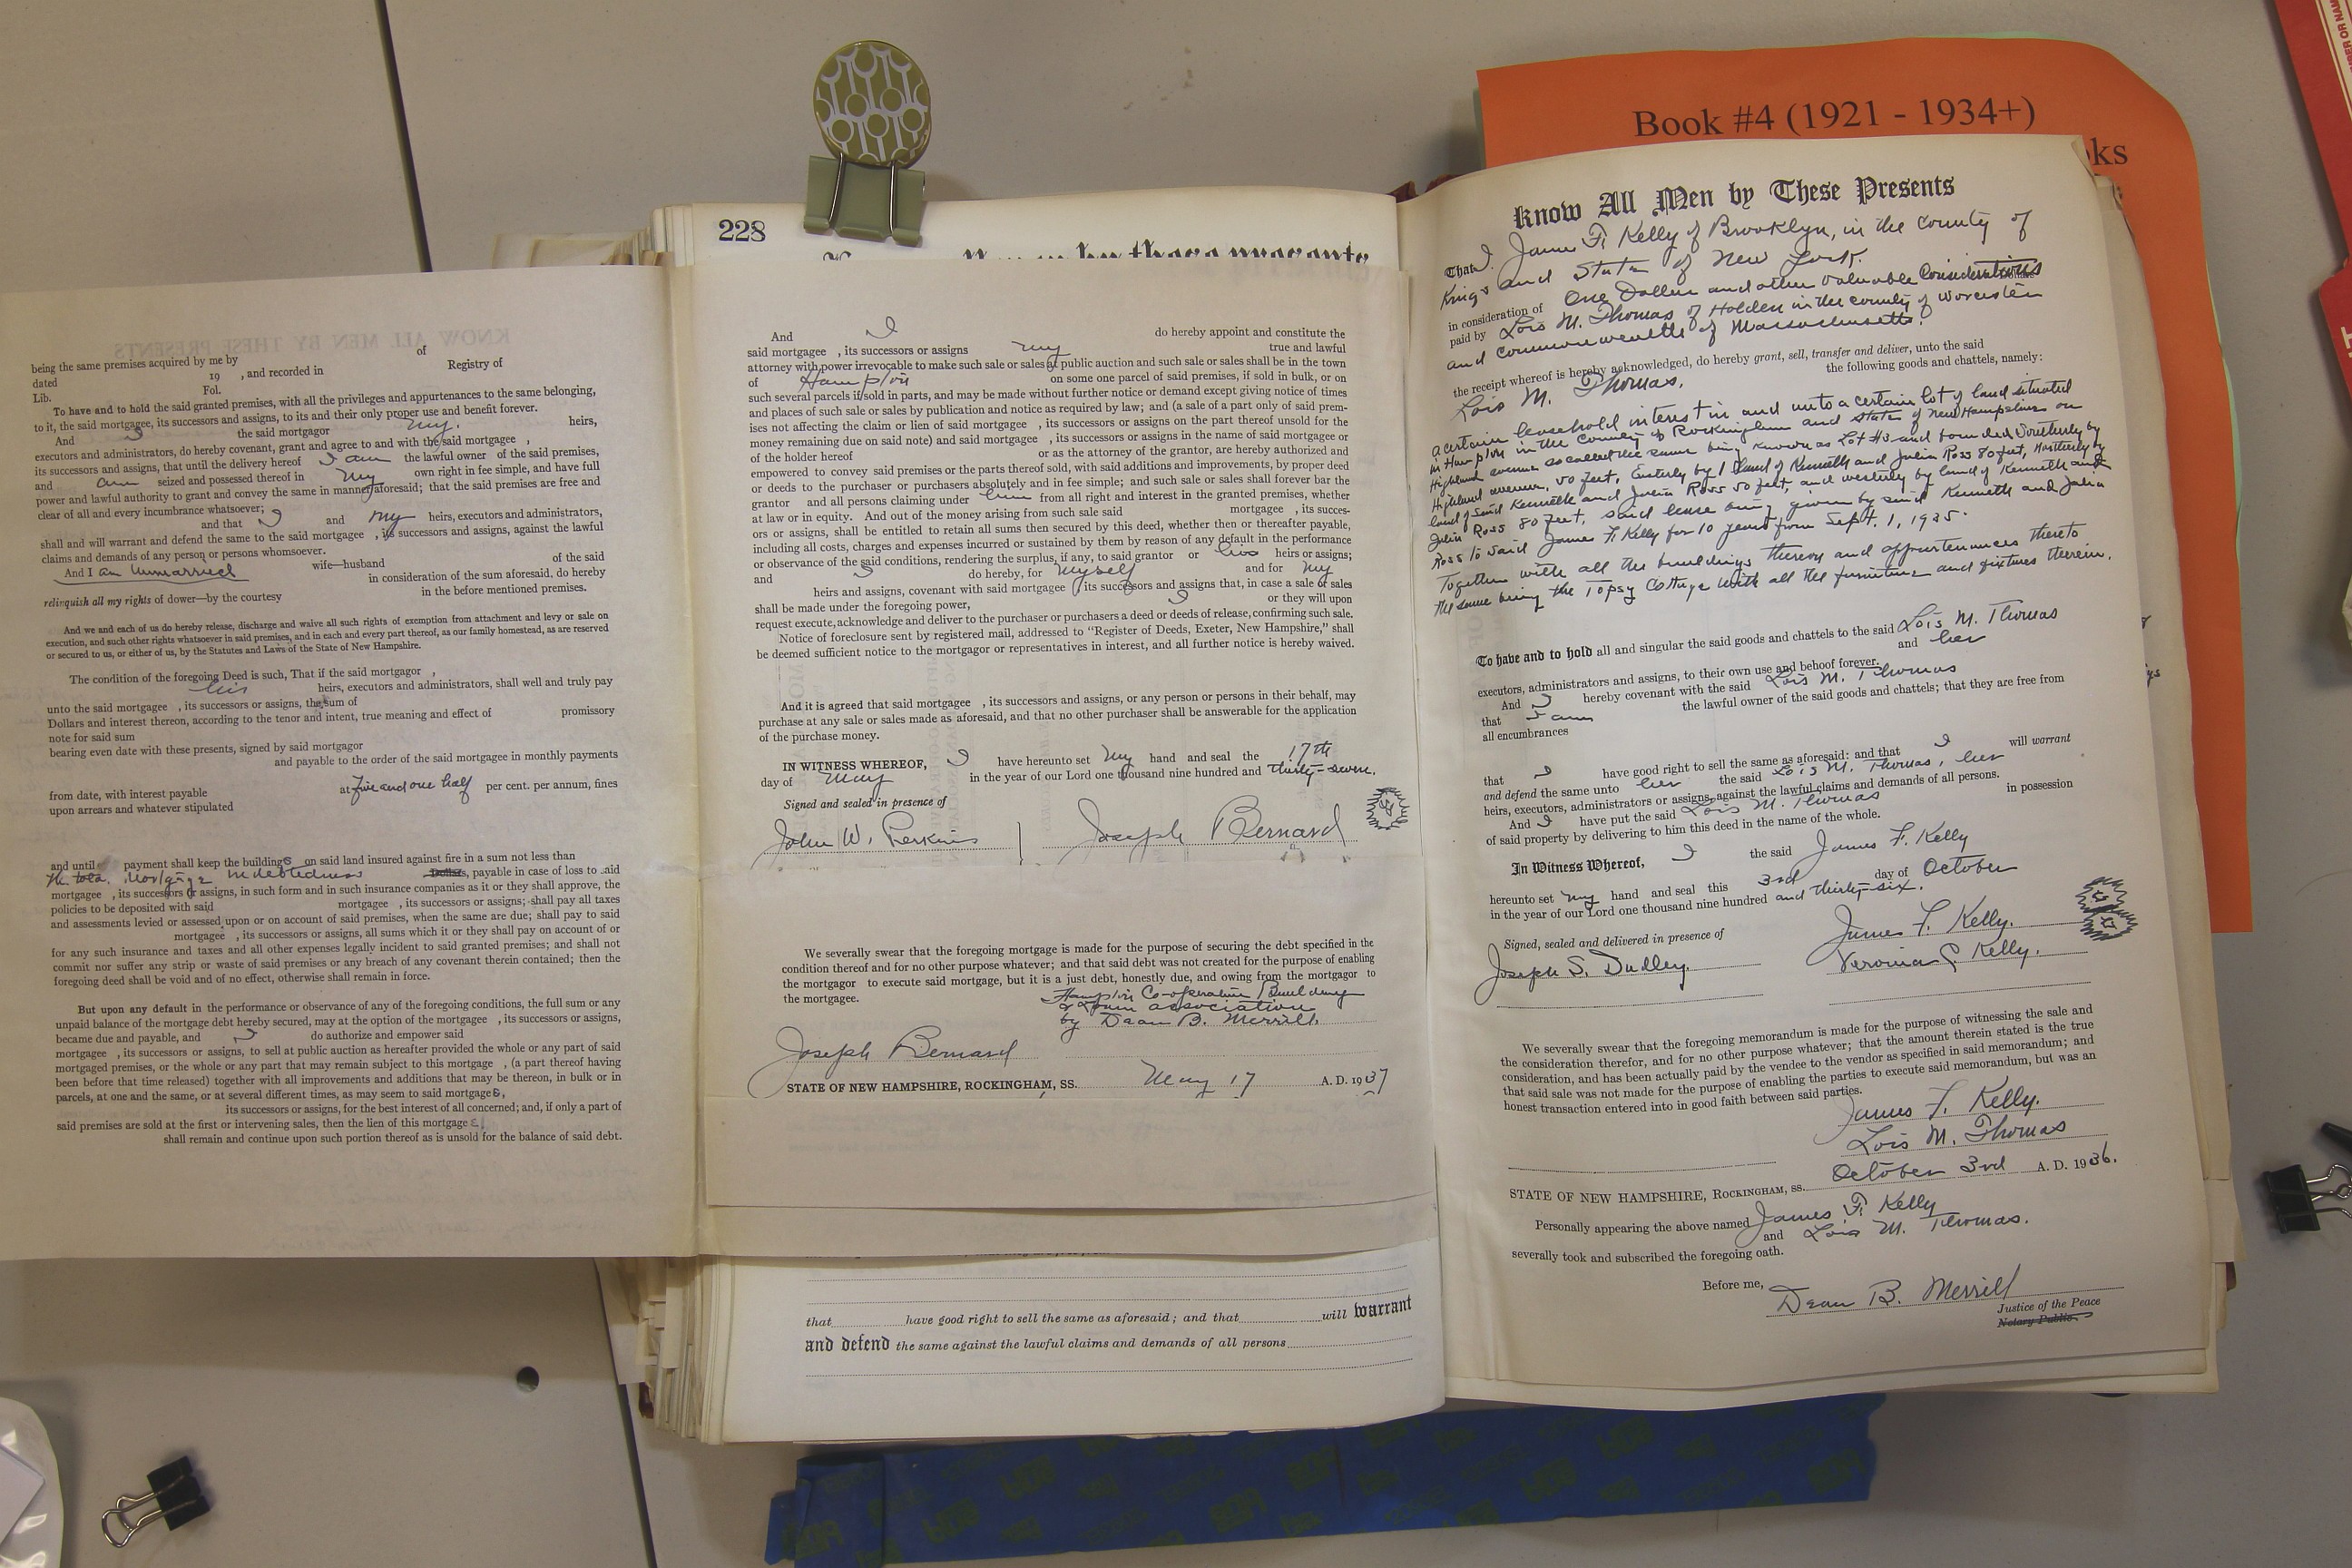 being the same premises acquired by me by of
dated 19 , and recorded in Registry of
Lib. Fol.
To have and to hold the said granted premises, with all the privileges and appurtenances to the same belonging,
to it, the said mortgagee, its successors and assigns, to its and their only proper use and benefit forever.
And I the said mortgagor my. heirs,
executors and administrators, do hereby covenant, grant and agree to and with the said mortgagee ,
its successors and assigns, that until the delivery hereof I am the lawful owner of the said premises,
and am seized and possessed thereof in my own right in fee simple, and have full
power and lawful authority to grant and convey the same in manner aforesaid; that the said premises are free and
clear of all and every incumbrance whatsoever;
and that I and my heirs, executors and administrators,
shall and will warrant and defend the same to the said mortgagee , its successors and assigns, against the lawful
claims and demands of any person or persons whomsoever.
And I am unmarried wife—husband of the said
in consideration of the sum aforesaid, do hereby
relinquish all my rights of dower—by the courtesy in the before mentioned premises.
And we and each of us do hereby release, discharge and waive all such rights of exemption from attachment and levy or sale on
execution, and such other rights whatsoever in said premises, and in each and every part thereof, as our family homestead, as are reserved
or secured to us, or either of us, by the Statutes and Laws of the State of New Hampshire.
The condition of the foregoing Deed is such, That if the said mortgagor ,
his heirs, executors and administrators, shall well and truly pay
unto the said mortgagee , its successors or assigns, the sum of
Dollars and interest thereon, according to the tenor and intent, true meaning and effect of promissory
note for said sum
bearing even date with these presents, signed by said mortgagor
and payable to the order of the said mortgagee in monthly payments
from date, with interest payable at five and one half per cent. per annum, fines
upon arrears and whatever stipulated
and until payment shall keep the buildings on said land insured against fire in a sum not less than
the total mortgage indebtedness Dollars, payable in case of loss to said
mortgagee , its successors or assigns, in such form and in such insurance companies as it or they shall approve, the
policies to be deposited with said mortgagee , its successors or assigns; shall pay all taxes
and assessments levied or assessed upon or on account of said premises, when the same are due; shall pay to said
mortgagee , its successors or assigns, all sums which it or they shall pay on account of or
for any such insurance and taxes and all other expenses legally incident to said granted premises; and shall not
commit nor suffer any strip or waste of said premises or any breach of any covenant therein contained; then the
foregoing deed shall be void and of no effect, otherwise shall remain in force.
But upon any default in the performance or observance of any of the foregoing conditions, the full sum or any
unpaid balance of the mortgage debt hereby secured, may at the option of the mortgagee , its successors or assigns,
became due and payable, and I do authorize and empower said
mortgagee , its successors or assigns, to sell at public auction as hereafter provided the whole or any part of said
mortgaged premises, or the whole or any part that may remain subject to this mortgage , (a part thereof having
been before that time released) together with all improvements and additions that may be thereon, in bulk or in
parcels, at one and the same, or at several different times, as may seem to said mortgagee,
its successors or assigns, for the best interest of all concerned; and, if only a part of
said premises are sold at the first or intervening sales, then the lien of this mortgage
shall remain and continue upon such portion thereof as is unsold for the balance of said debt.
228
by these presents
And I do hereby appoint and constitute the
said mortgagee , its successors or assigns my true and lawful
attorney with power irrevocable to make such sale or sales at public auction and such sale or sales shall be in the town
of Hampton on some one parcel of said premises, if sold in bulk, or on
such several parcels if sold in parts, and may be made without further notice or demand except giving notice of times
and places of such sale or sales by publication and notice as required by law; and (a sale of a part only of said prem-
ises not affecting the claim or lien of said mortgagee , its successors or assigns on the part thereof unsold for the
money remaining due on said note) and said mortgagee , its successors or assigns in the name of said mortgagee or
of the holder hereof or as the attorney of the grantor, are hereby authorized and
empowered to convey said premises or the parts thereof sold, with said additions and improvements, by proper deed
or deeds to the purchaser or purchasers absolutely and in fee simple; and such sale or sales shall forever bar the
grantor and all persons claiming under him from all right and interest in the granted premises, whether
at law or in equity. And out of the money arising from such sale said mortgagee , its succes-
ors or assigns, shall be entitled to retain all sums then secured by this deed, whether then or thereafter payable,
including all costs, charges and expenses incurred or sustained by them by reason of any default in the performance
or observance of the said conditions, rendering the surplus, if any, to said grantor or his heirs or assigns;
and I do hereby, for myself and for my
heirs and assigns, covenant with said mortgagee , its successors and assigns that, in case a sale of sales
shall be made under the foregoing power, I or they will upon
request execute, acknowledge and deliver to the purchaser or purchasers a deed or deeds of release, confirming such sale.
Notice of foreclosure sent by registered mail, addressed to "Register of Deeds, Exeter, New Hampshire," shall
be deemed sufficient notice to the mortgagor or representatives in interest, and all further notice is hereby waived.
And it is agreed that said mortgagee , its successors and assigns, or any person or persons in their behalf, may
purchase at any sale or sales made as aforesaid, and that no other purchaser shall be answerable for the application
of the purchase money.
IN WITNESS WHEREOF, I have hereunto set my hand and seal the 17th
day of May in the year of our Lord one thousand nine hundred and thirty-seven.
Signed and sealed in presence of
John W. Perkins Joseph Bernard
We severally swear that the foregoing mortgage is made for the purpose of securing the debt specified in the
condition thereof and for no other purpose whatever; and that said debt was not created for the purpose of enabling
the mortgagor to execute said mortgage, but it is a just debt, honestly due, and owing from the mortgagor to
the mortgagee.
Hampton Co-operative Building
& Loan association
by Dean B. Merrill.
Joseph Bernard
STATE OF NEW HAMPSHIRE, ROCKINGHAM, SS. May 17 A. D. 1937
that have good right to sell the same as aforesaid; and that will warrant
and defend the same against the lawful claims and demands of all persons
Book #4 (1921 - 1934+)
ks
Know All Men by These Presents
That I. James F. Kelly of Brooklyn, in the county of
Kings and State of New York.
in consideration of One Dollar and other valuable Considerations
paid by Lois M. Thomas of Holden in the county of Worcester
and commonwealth of Massachusetts.
the receipt whereof is hereby acknowledged, do hereby grant, sell, transfer and deliver, unto the said
Lois M. Thomas. the following goods and chattels, namely:
a certain leasehold interest in and unto a certain lot of land situated
in Hampton in the County of Rockingham and State of New Hampshire on
Highland avenue so called the same being known as Lot #3 and bounded Southerly by
Highland avenue, 50 feet, Easterly by land of Kenneth and Julia Ross 80 feet, Northerly by
land of said Kenneth and Julia Ross 50 feet, and westerly by land of Kenneth and
Julia Ross 80 feet, said lease being given by said Kenneth and Julia
Ross to said James F. Kelly for 10 years from Sept. 1, 1935.
Together with all the buildings thereon and appurtenances thereto
the same being the Topsy Cottage with all the furniture and fixtures therein.
To have and to hold all and singular the said goods and chattels to the said Lois M. Thomas
and her
executors, administrators and assigns, to their own use and behoof forever.
And I hereby covenant with the said Lois M. Thomas
that I am the lawful owner of the said goods and chattels; that they are free from
all encumbrances
that I have good right to sell the same as aforesaid: and that I will warrant
and defend the same unto her the said Lois M. Thomas, her
heirs, executors, administrators or assigns, against the lawful claims and demands of all persons.
And I have put the said Lois M. Thomas in possession
of said property by delivering to him this deed in the name of the whole.
In Witness Whereof, I the said James F. Kelly
hereunto set my hand and seal this 3rd day of October
in the year of our Lord one thousand nine hundred and thirty-six.
Signed, sealed and delivered in presence of
James F. Kelly.
Joseph S. Dudley. Veronica C Kelly.
We severally swear that the foregoing memorandum is made for the purpose of witnessing the sale and
the consideration therefor, and for no other purpose whatever; that the amount therein stated is the true
consideration, and has been actually paid by the vendee to the vendor as specified in said memorandum; and
that said sale was not made for the purpose of enabling the parties to execute said memorandum, but was an
honest transaction entered into in good faith between said parties.
James F. Kelly.
Lois M. Thomas
STATE OF NEW HAMPSHIRE, ROCKINGHAM, SS. October 3rd A. D. 1936.
Personally appearing the above named James F. Kelly
and Lois M. Thomas.
severally took and subscribed the foregoing oath.
Before me, Dean B. Merrill
Justice of the Peace
Notary Public